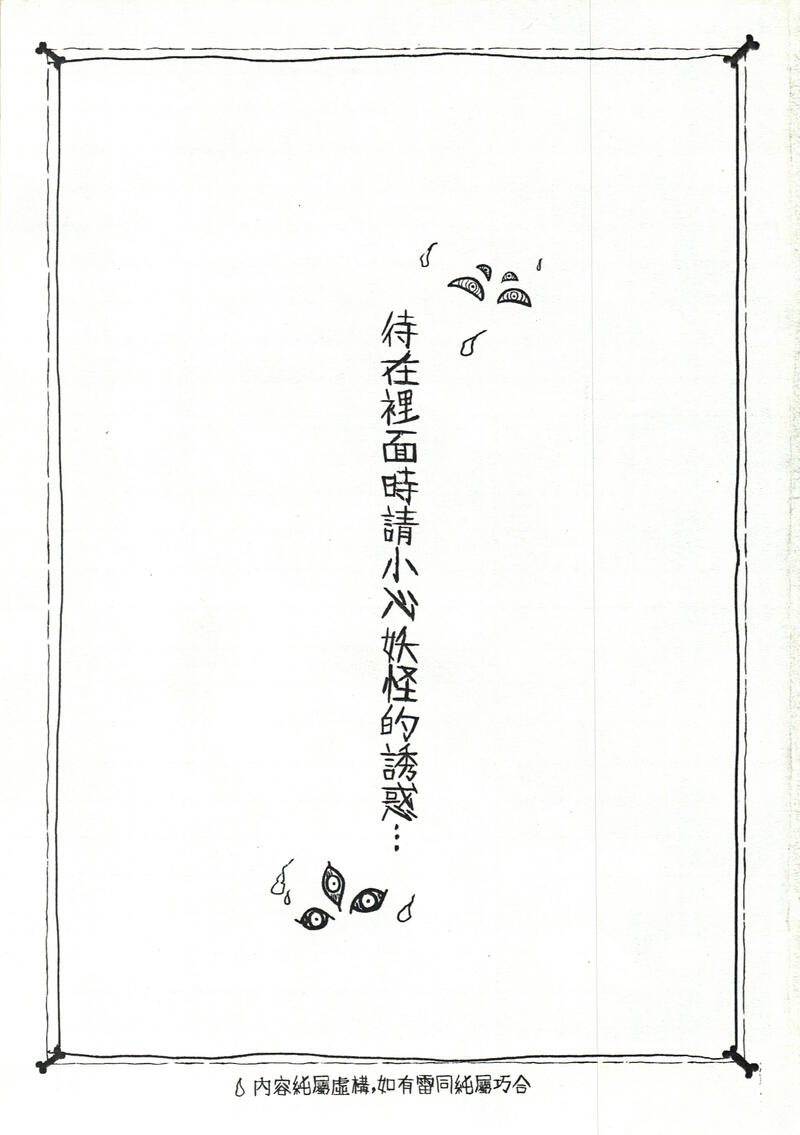 待在裡面時請小心妖怪的誘惑…
内容純屬虛構，如有雷同純屬巧合